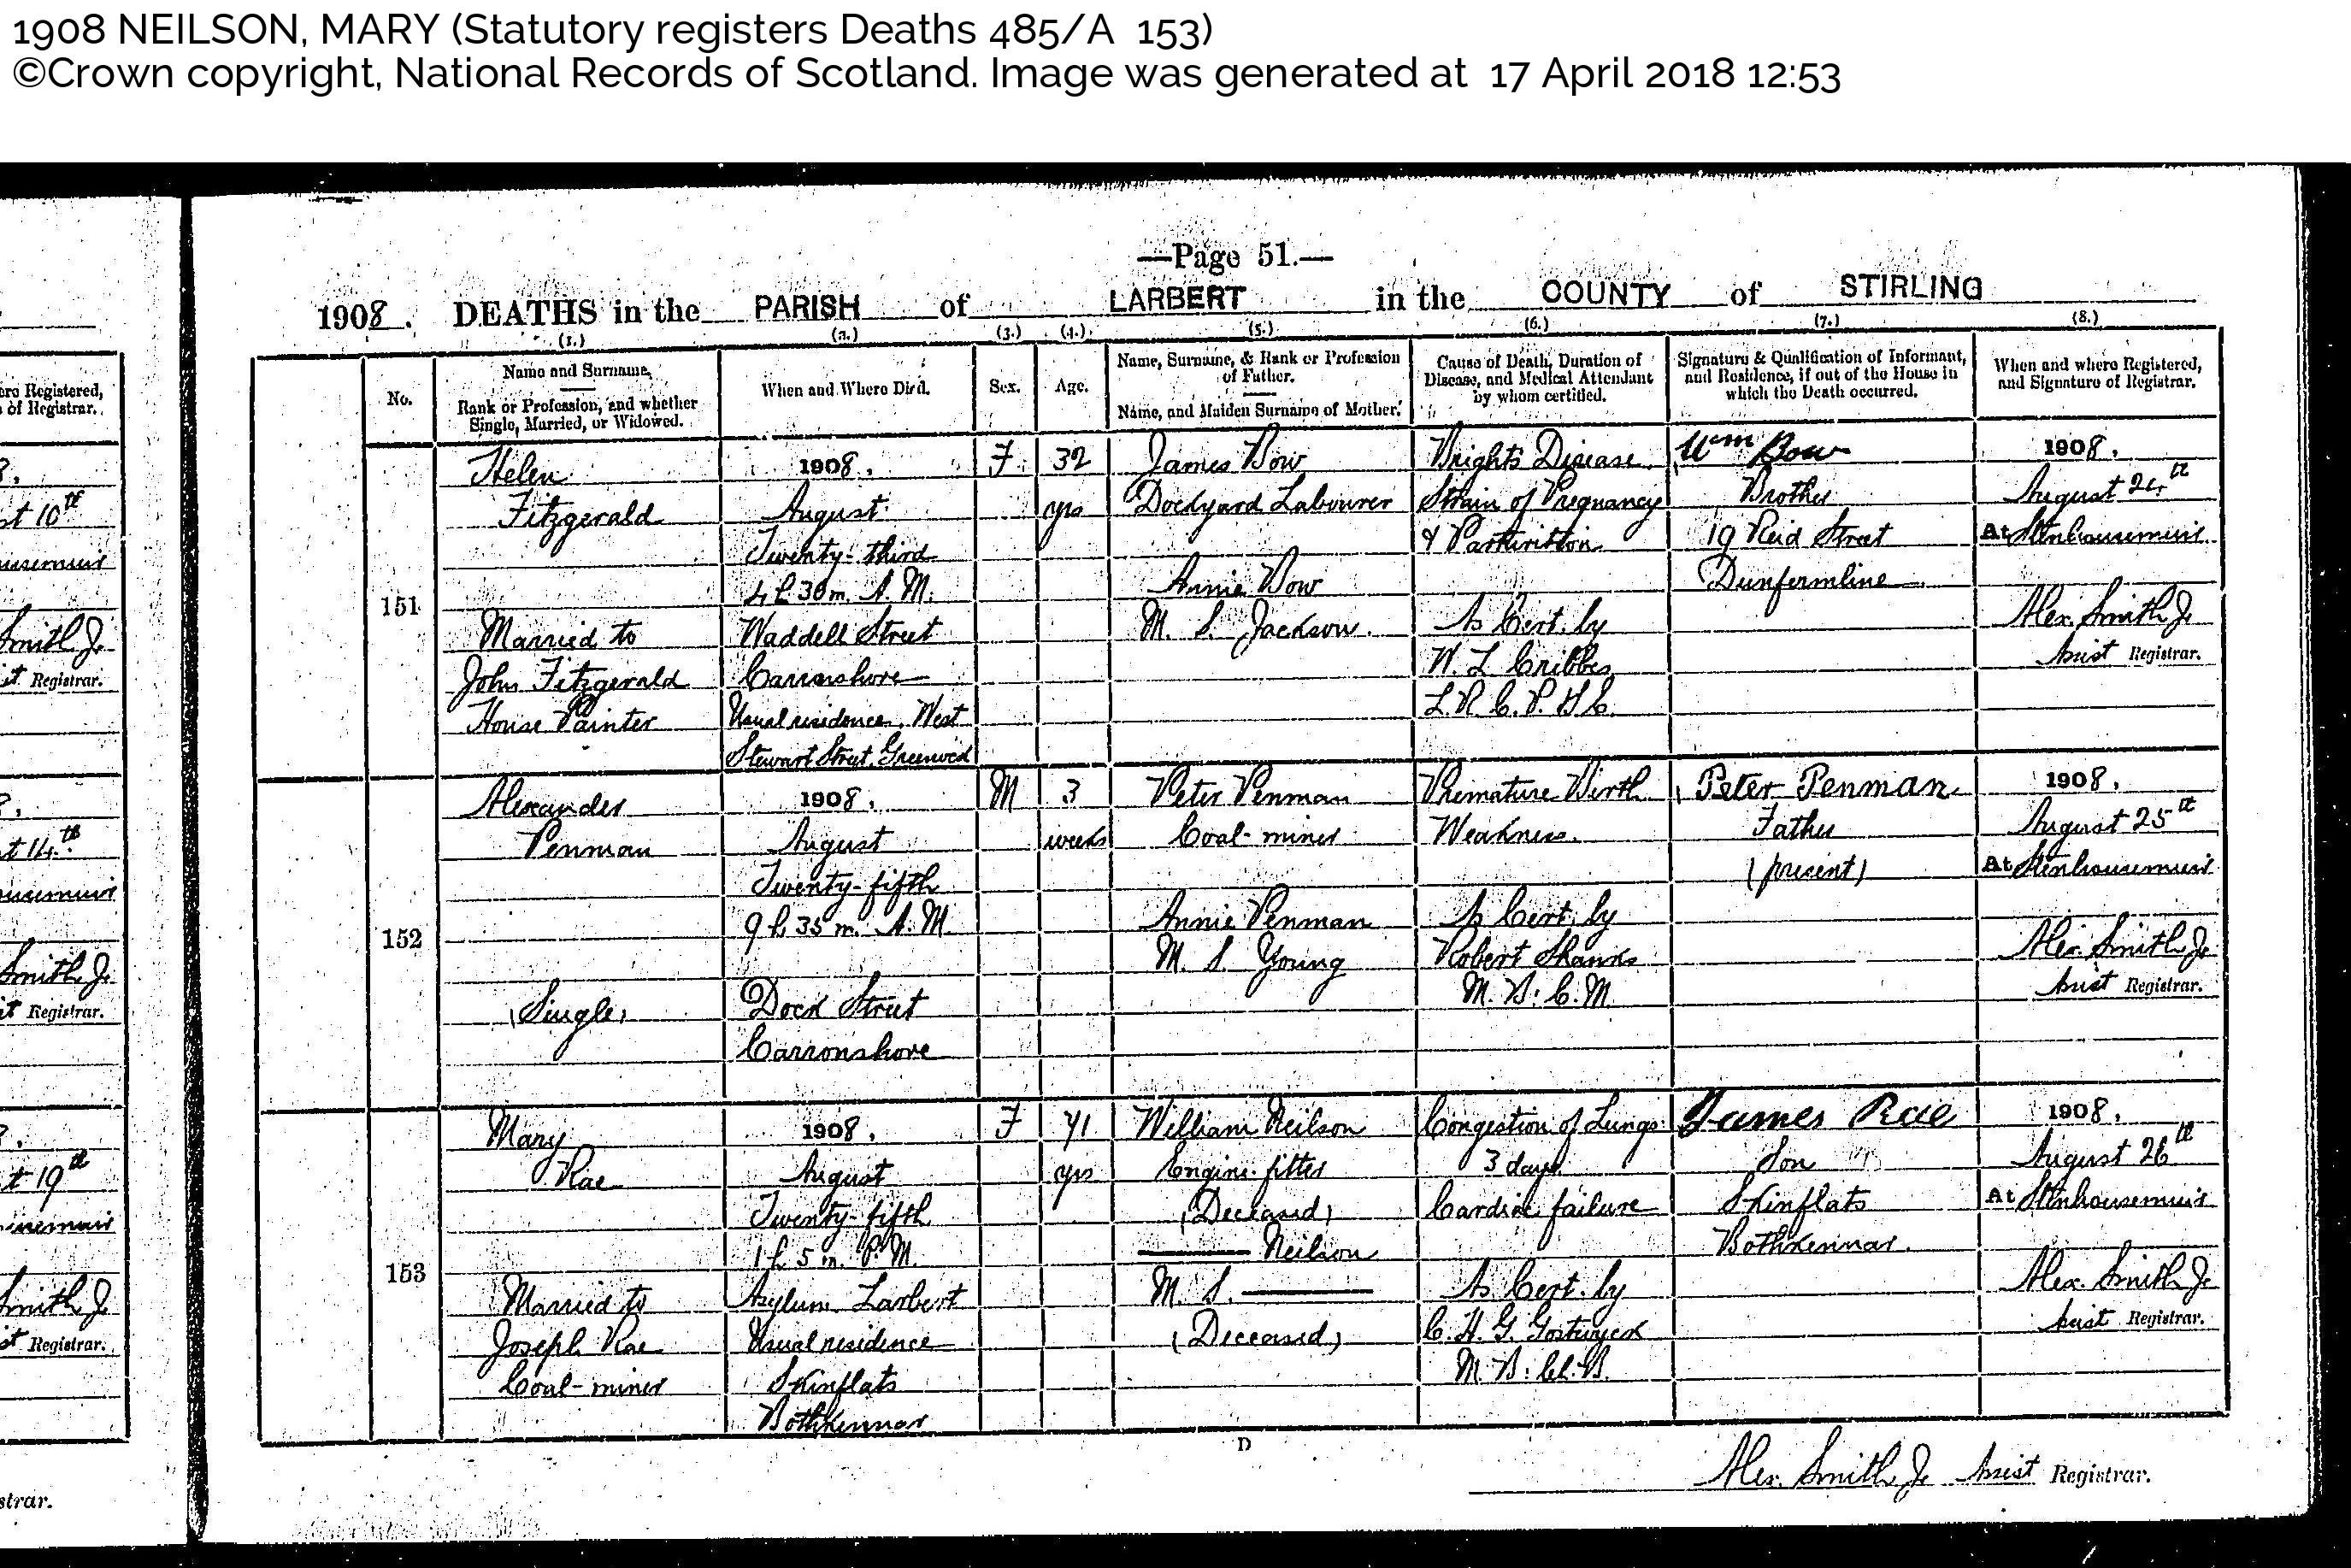 1908 NEILSON, MARY (Statutory registers Deaths 485/A 153)
©Crown copyright, National Records of Scotland. Image was generated at 17 April 2018 12:53
—Page 51.—
1908. DEATHS in the PARISH of LARBERT in the COUNTY of STIRLING
(1.) (2.) (3.) (4.) (5.) (6.) (7.) (8.)
No.
Name and Surname.
Rank or Profession, and whether
Single, Married, or Widowed.
When and Where Died.
Sex.
Age.
Name, Surname, & Rank or Profession
of Father.
Name, and Maiden Surname of Mother.
Cause of Death, Duration of
Disease, and Medical Attendant
by whom certified.
Signature & Qualification of Informant,
and Residence, if out of the House in
which the Death occurred.
When and where Registered,
and Signature of Registrar.
151
Helen
Fitzgerald
Married to
John Fitzgerald
House Painter
1908.
August
Twenty-third
4 h. 30 m. A.M.
Waddell Street
Carronshore
Usual residence, West
Stewart Street, Greenock
F
32
yrs
James Bow
Dockyard Labourer
Annie Bow
M. S. Jackson.
Brights Disease.
Strain of Pregnancy
& Parturition
As Cert. by
W. L. Cribbes
L.R.C.P. & S.E.
Wm Bow
Brother
19 Reid Street
Dunfermline
1908.
August 24th
At Stenhousemuir
Alex. Smith Jr
Assist Registrar.
152
Alexander
Penman
(Single)
1908.
August
Twenty-fifth
9 h. 35 m. A.M.
Dock Street
Carronshore
M
3
weeks
Peter Penman
Coal-miner
Annie Penman
M. S. Young
Premature Birth
Weakness.
As Cert. by
Robert Shanks
M.B: C.M.
Peter Penman
Father
(present)
1908.
August 25th
At Stenhousemuir
Alex. Smith Jr
Assist Registrar.
153
Mary
Rae
Married to
Joseph Rae
Coal-miner
1908.
August
Twenty-fifth
1 h. 5 m. P.M.
Asylum Larbert
Usual residence
Skinflats
Bothkennar
F
71
yrs
William Neilson
Engine-fitter
(Deceased)
——— Neilson
M. S. ———
(Deceased)
Congestion of Lungs
3 days
Cardiac failure
As Cert. by
C. H. G. Gostwyck
M.B: Ch.B.
James Rae
Son
Skinflats
Bothkennar.
1908.
August 26th
At Stenhousemuir
Alex. Smith Jr
Assist Registrar.
D
Alex. Smith Jr Assist Registrar.